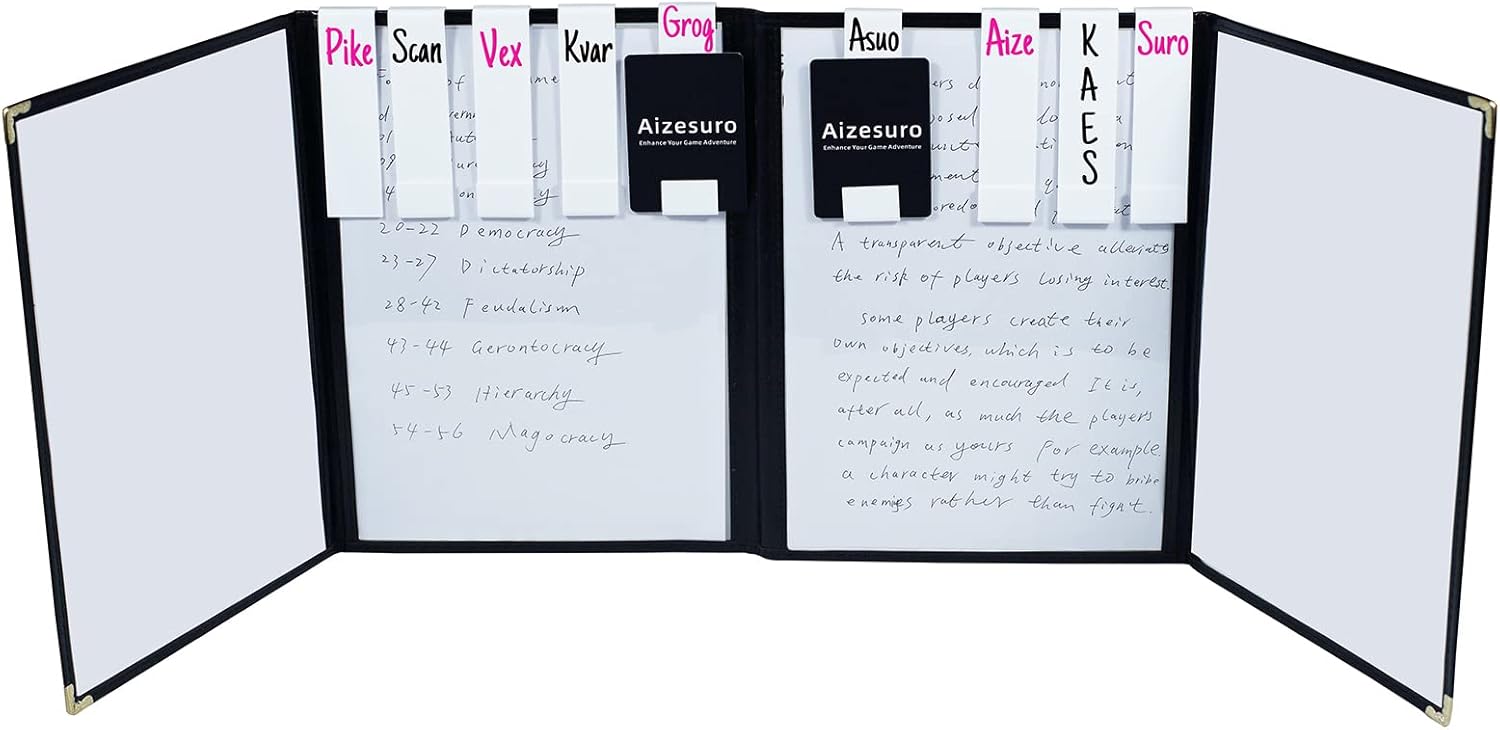 Pike
Scan
Vex
Kvar
Grog
Asuo
Aize
KAES
Suro
Aizesuro
Enhance Your Game Adventure
Aizesuro
Enhance Your Game Adventure
of
20-22 Democracy
23-27 Dictatorship
28-42 Feudalism
43-44 Gerontocracy
45-53 Hierarchy
54-56 Magocracy
A transparent objective alleviats
the risk of players losing interest.
some players create their
own objectives, which is to be
expected and encouraged It is,
after all, as much the players
campaign as yours For example.
a character might try to bribe
enemies rather than fight.